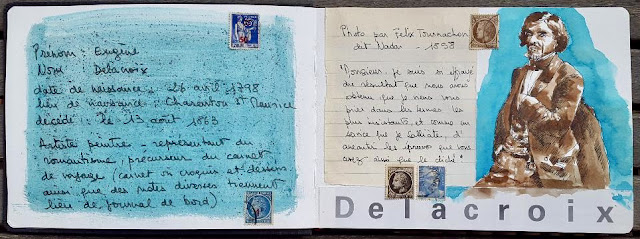 Prénom : Eugène
Nom : Delacroix
date de naissance : 26 avril 1798
lieu de naissance : Charenton St Maurice
décédé : le 13 août 1863
Artiste peintre - représentant du
romantisme, précurseur du carnet
de voyage (carnet où croquis et dessins
ainsi que des notes diverses tiennent
lieu de journal de bord)
Photo par Félix Tournachon
dit Nadar - 1858
"Monsieur, je suis si effrayé
du résultat que nous avons
obtenu que je viens vous
prier dans les termes les
plus instants et comme un
service que je sollicite, d'
anéantir les épreuves que vous
avez ainsi que le cliché"
Delacroix